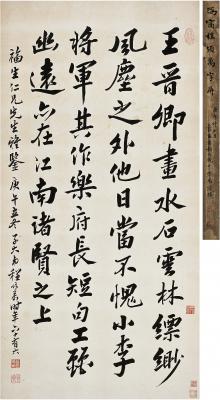 王晉卿畫水石雲林縹緲
風塵之外他日當不愧小李
將軍其作樂府長短句工
幽遠亦在江南諸賢之上
福生仁兄先生鑒 庚午立冬 子大甫程頌萬時年六十有六